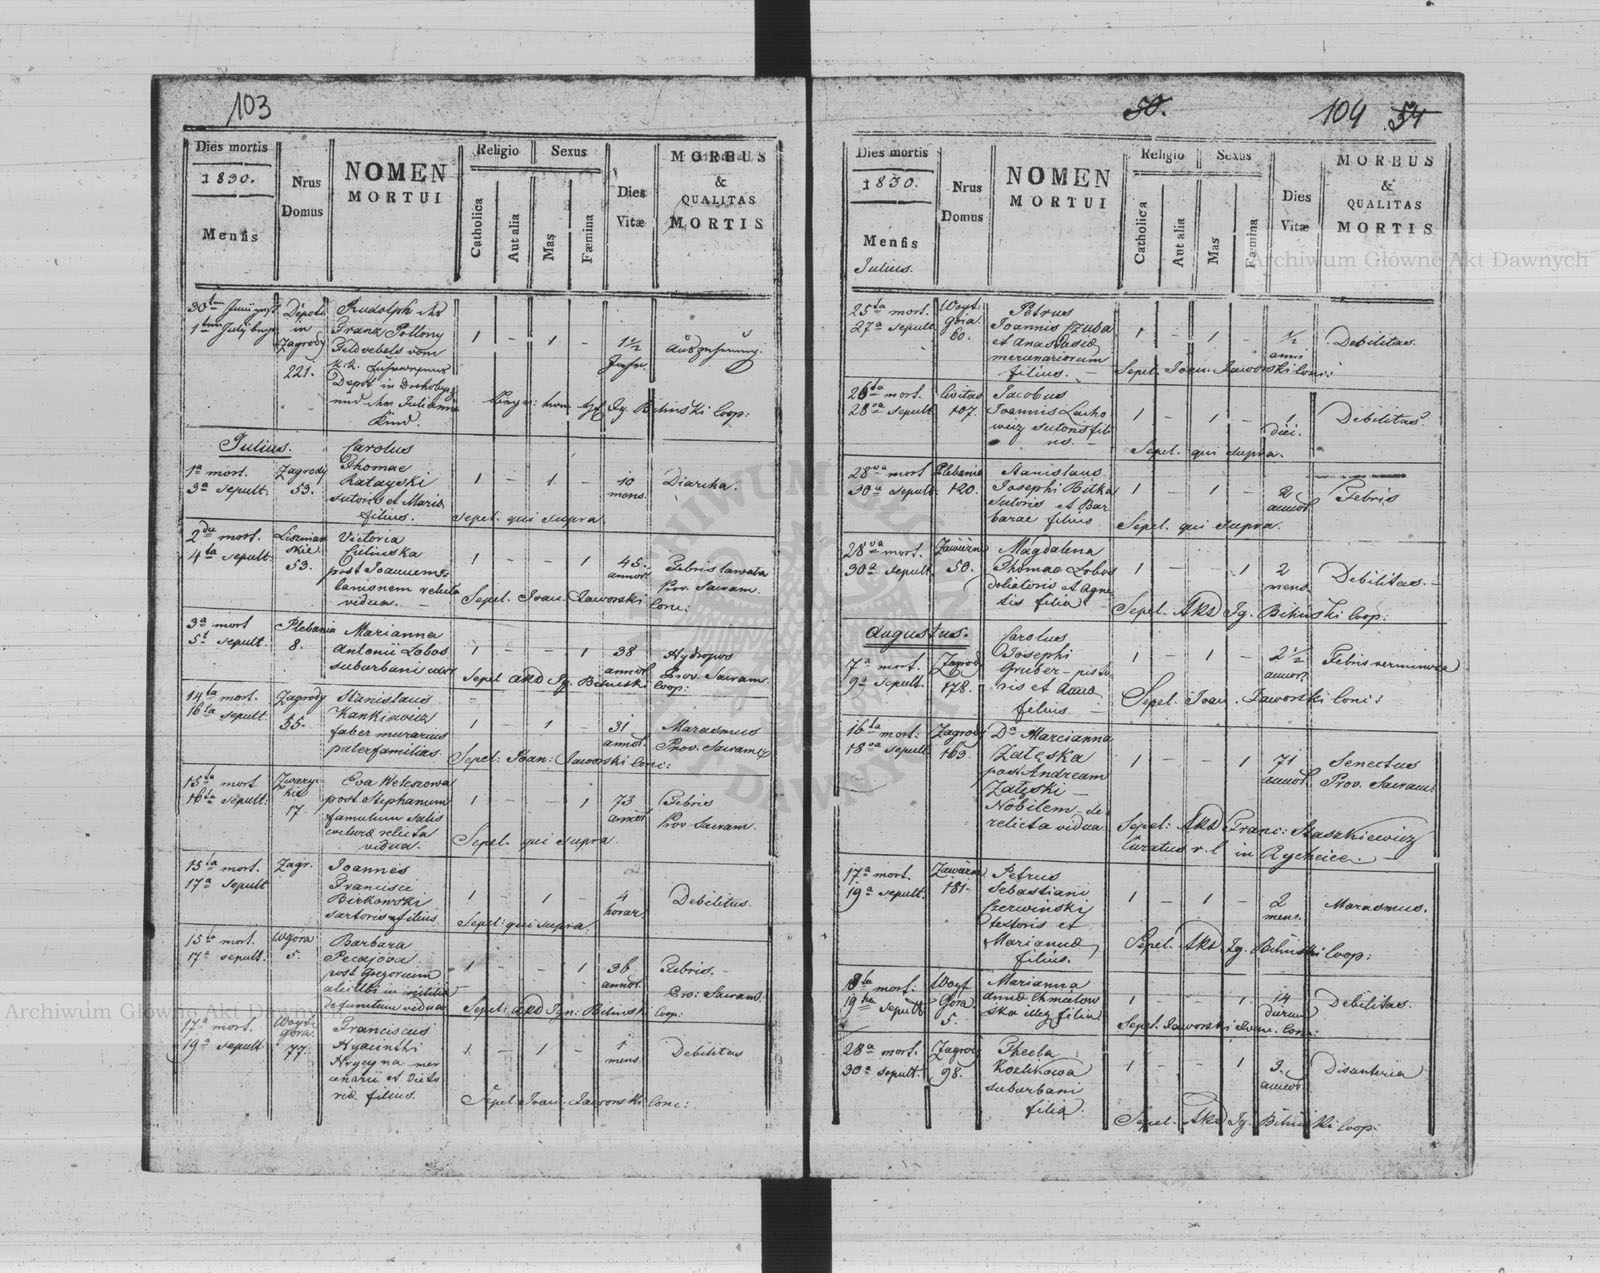 103
Dies mortis
1830.
Mensis
Nrus
Domus
NOMEN
MORTUI
Religio
Sexus
Catholica
Aut alia
Mas
Fæmina
Dies
Vitæ
MORBUS
&
QUALITAS
MORTIS
30
Depot
in
Zagrody
221.
Rudolph
Franz
Feldwebels vom
Depot in
1 - 1 -
1 1/2
Jahr.
Auszehrung.
Bilinski Coop:
Julius.
1a mort.
3a sepult.
Zagrody
53.
Carolus
Thomae
Ratayski
sutoris et Maria
filius.
1 - 1 -
10
mens.
Diarrha.
Sepel. qui supra.
2da mort.
4ta sepult.
53.
Victoria
post Joannem
lanionem relicta
vidua.
1 - - 1
45.
annor.
Febris
Prov. Sacram.
Sepel. Joan. Jaworski Conc:
3a mort
5t sepult.
Plebania
8.
Marianna
Antonii Lobos
suburbani uxor
1 - - 1
38
annor.
Hydrops
Prov. Sacram.
Sepel. ARD Ig. Bilinski Coop:
14ta mort.
16ta sepult
Zagrody
55.
Stanislaus
Kankiewicz
faber murarius
paterfamilias.
1 - 1 -
31
annor.
Marasmus
Prov. Sacram.
Sepel. Joan: Jaworski Conc:
15ta mort
16ta sepult.
17.
Eva
post Stephanum
famulum salis
relicta
vidua.
1 - - 1
73
annor.
Febris
Prov Sacram.
Sepel. qui supra.
15ta mort.
17a sepult
Zagr.
Joannes
Francisci
Birkowski
sartoris filius.
1 - 1 -
4
horar.
Debilitas.
Sepel. qui supra.
15ta mort.
17a sepult.
5.
Barbara
post Gregorium
in militia
defunctum vidua
1 - - 1
36
annor.
Febris.
Pro: Sacram.
Sepel: ARD Ign: Bilinski Coop:
17a mort.
19a sepult
Woyt
Gora
77.
Franciscus
Hyacinthi
Hrycyna mer
cenarii et Victo
ria filius.
1 - 1 -
1
mens.
Debilitas
Sepel. Joan. Jaworski Conc:
50.
104 54
Dies mortis
1830.
Mensis
Julius.
Nrus
Domus
NOMEN
MORTUI
Religio
Sexus
Catholica
Aut alia
Mas
Fæmina
Dies
Vitæ
MORBUS
&
QUALITAS
MORTIS
25ta mort.
27a sepult
Woyt.
Gora
60.
Petrus
Joannis Czuba
et Anastasiæ
mercenariorum
filius.
1 - 1 -
1/2
anni
Debilitas.
Sepel. Joan. Jaworski Conc:
26ta mort.
28va sepult
Civitas
107.
Jacobus
Joannis Lacho
wicz sutoris fili
us.
1 - 1 -
1
diei.
Debilitas.
Sepel. qui supra.
28va mort
30a sepult.
Plebania
120.
Stanislaus
Josephi Bilka
sutoris et Bar
barae filius
1 - 1 -
2
annor.
Febris
Sepel. qui supra.
28va mort.
30a sepult.
50.
Magdalena
Thomae Lobos
doliatoris et Agne
tis filia
1 - - 1
2
mens.
Debilitas.
Sepel. ARD Ig. Bilinski Coop:
Augustus.
7a mort.
9a sepult.
Zagrod
178.
Carolus
Josephi
Gruber - pisto
ris et Annæ
filius.
1 - 1 -
2 1/2
annor.
Febris verminosa
Sepel. Joan. Jaworski Conc:
16ta mort:
18va sepult.
Zagrody
163.
Da Marcianna
Załęska
post Andream
Załęski
Nobilem de
relicta vidua.
1 - - 1
71
annor.
Senectus
Prov. Sacram:
Sepel: ARD Franc: Staszkiewicz
Curatus r. l in Rychcice.
17a mort.
19a sepult.
181.
Petrus
Sebastiani
Czerwinski
textoris et
Mariannæ
filius.
1 - 1 -
2
mens.
Marasmus.
Sepel. ARD Ig. Bilinski Coop:
18ta mort:
19ta sepult
Woyt
Gora
5.
Marianna
Annæ Chmielow
ska illeg filia
1 - - 1
14
dierum
Debilitas.
Sepel. Jaworski Joan. Conc:
28a mort.
30a sepult.
Zagrody
98.
Thecla
Kozlikowa
suburbani
filia.
1 - - 1
3.
annor.
Disenteria
Sepel. ARD Ig. Bilinski Coop:
Archiwum Główne Akt Dawnych
Archiwum Główne Akt Dawnych
ARCHIWUM GŁÓWNE AKT DAWNYCH